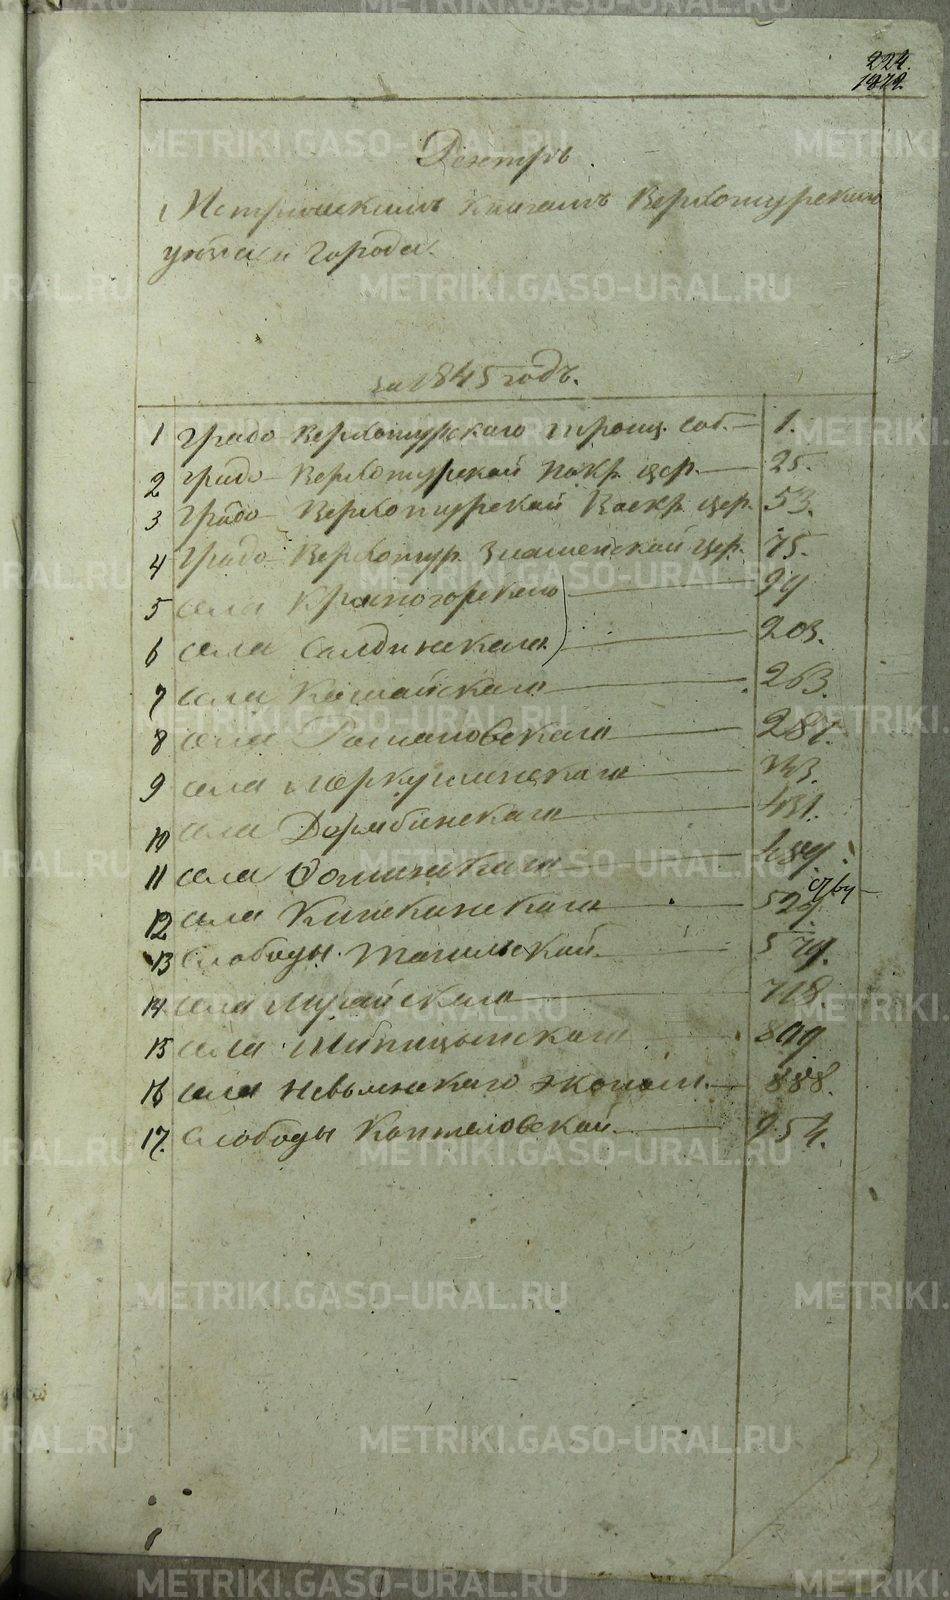 224.
Реэстръ.
Метрическимъ книгамъ Верхотурскаго
уѣзда и города.
за 1845 годъ.
1 Градо Верхотурскаго троиц. Соб. 1.
2 градо Верхотурской Покр. цер. 25.
3 Градо Верхотурской Воскр. цер. 53.
4 Градо Верхотур. Знаменской цер. 75.
5 села Красногорскаго 99
6 села Салдинскаго 203.
7 села Кошайскаго 263.
8 села Романовскаго 281.
9 села Меркушинскаго 343.
10 села Дерябинскаго 431.
11 села Фоминскаго 489.
12 села Кишкинскаго 529.
13 Слободы Тагильской 579.
14 села Мугайскаго 718.
15 села 899
16 села Невьянскаго эконом. 888.
17. Слободы Коптеловской 954.
METRIKI.GASO-URAL.RU